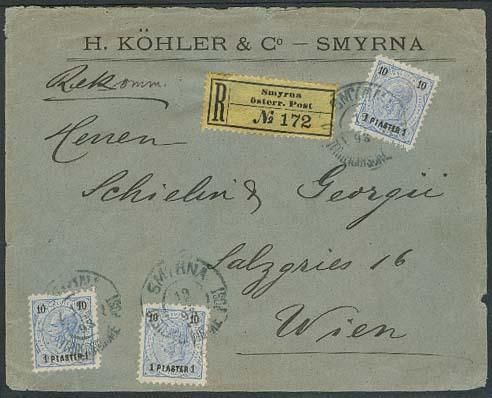 H. KÖHLER & Cº – SMYRNA
Rekomm.
R
Smyrna
österr. Post
№ 172
10 10
1 PIASTER 1
SMYRNA
93
Herren
Schielin & Georgii
Salzgries 16
Wien
SMYRNA
93
10 10
1 PIASTER 1
SMYRNA
10 10
1 PIASTER 1